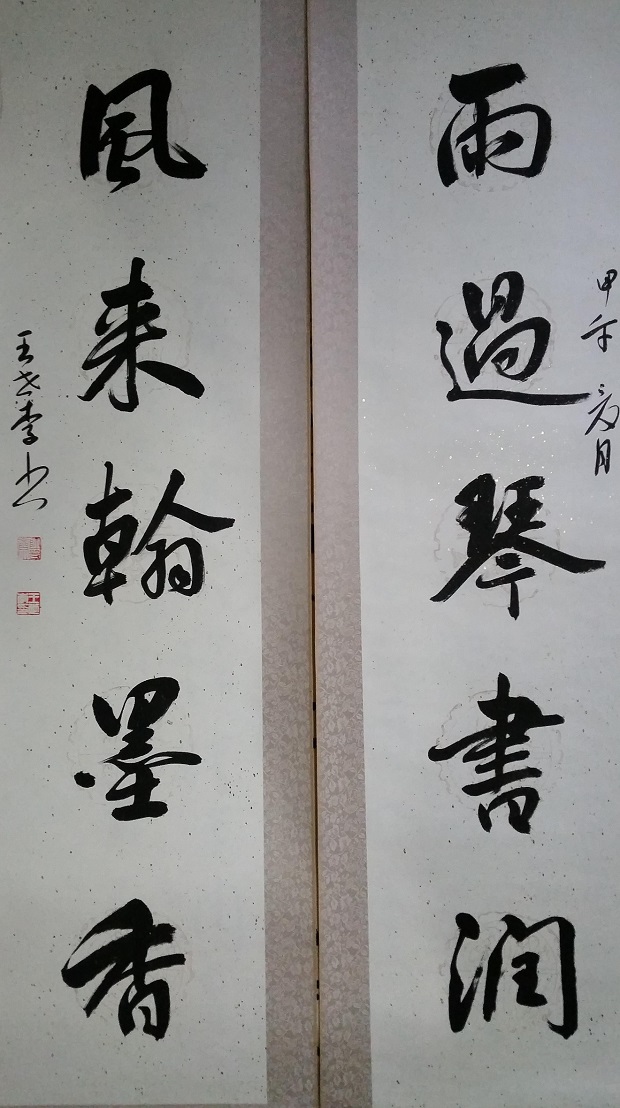 雨過琴書潤
甲午 夏月
風来翰墨香
王世孝书